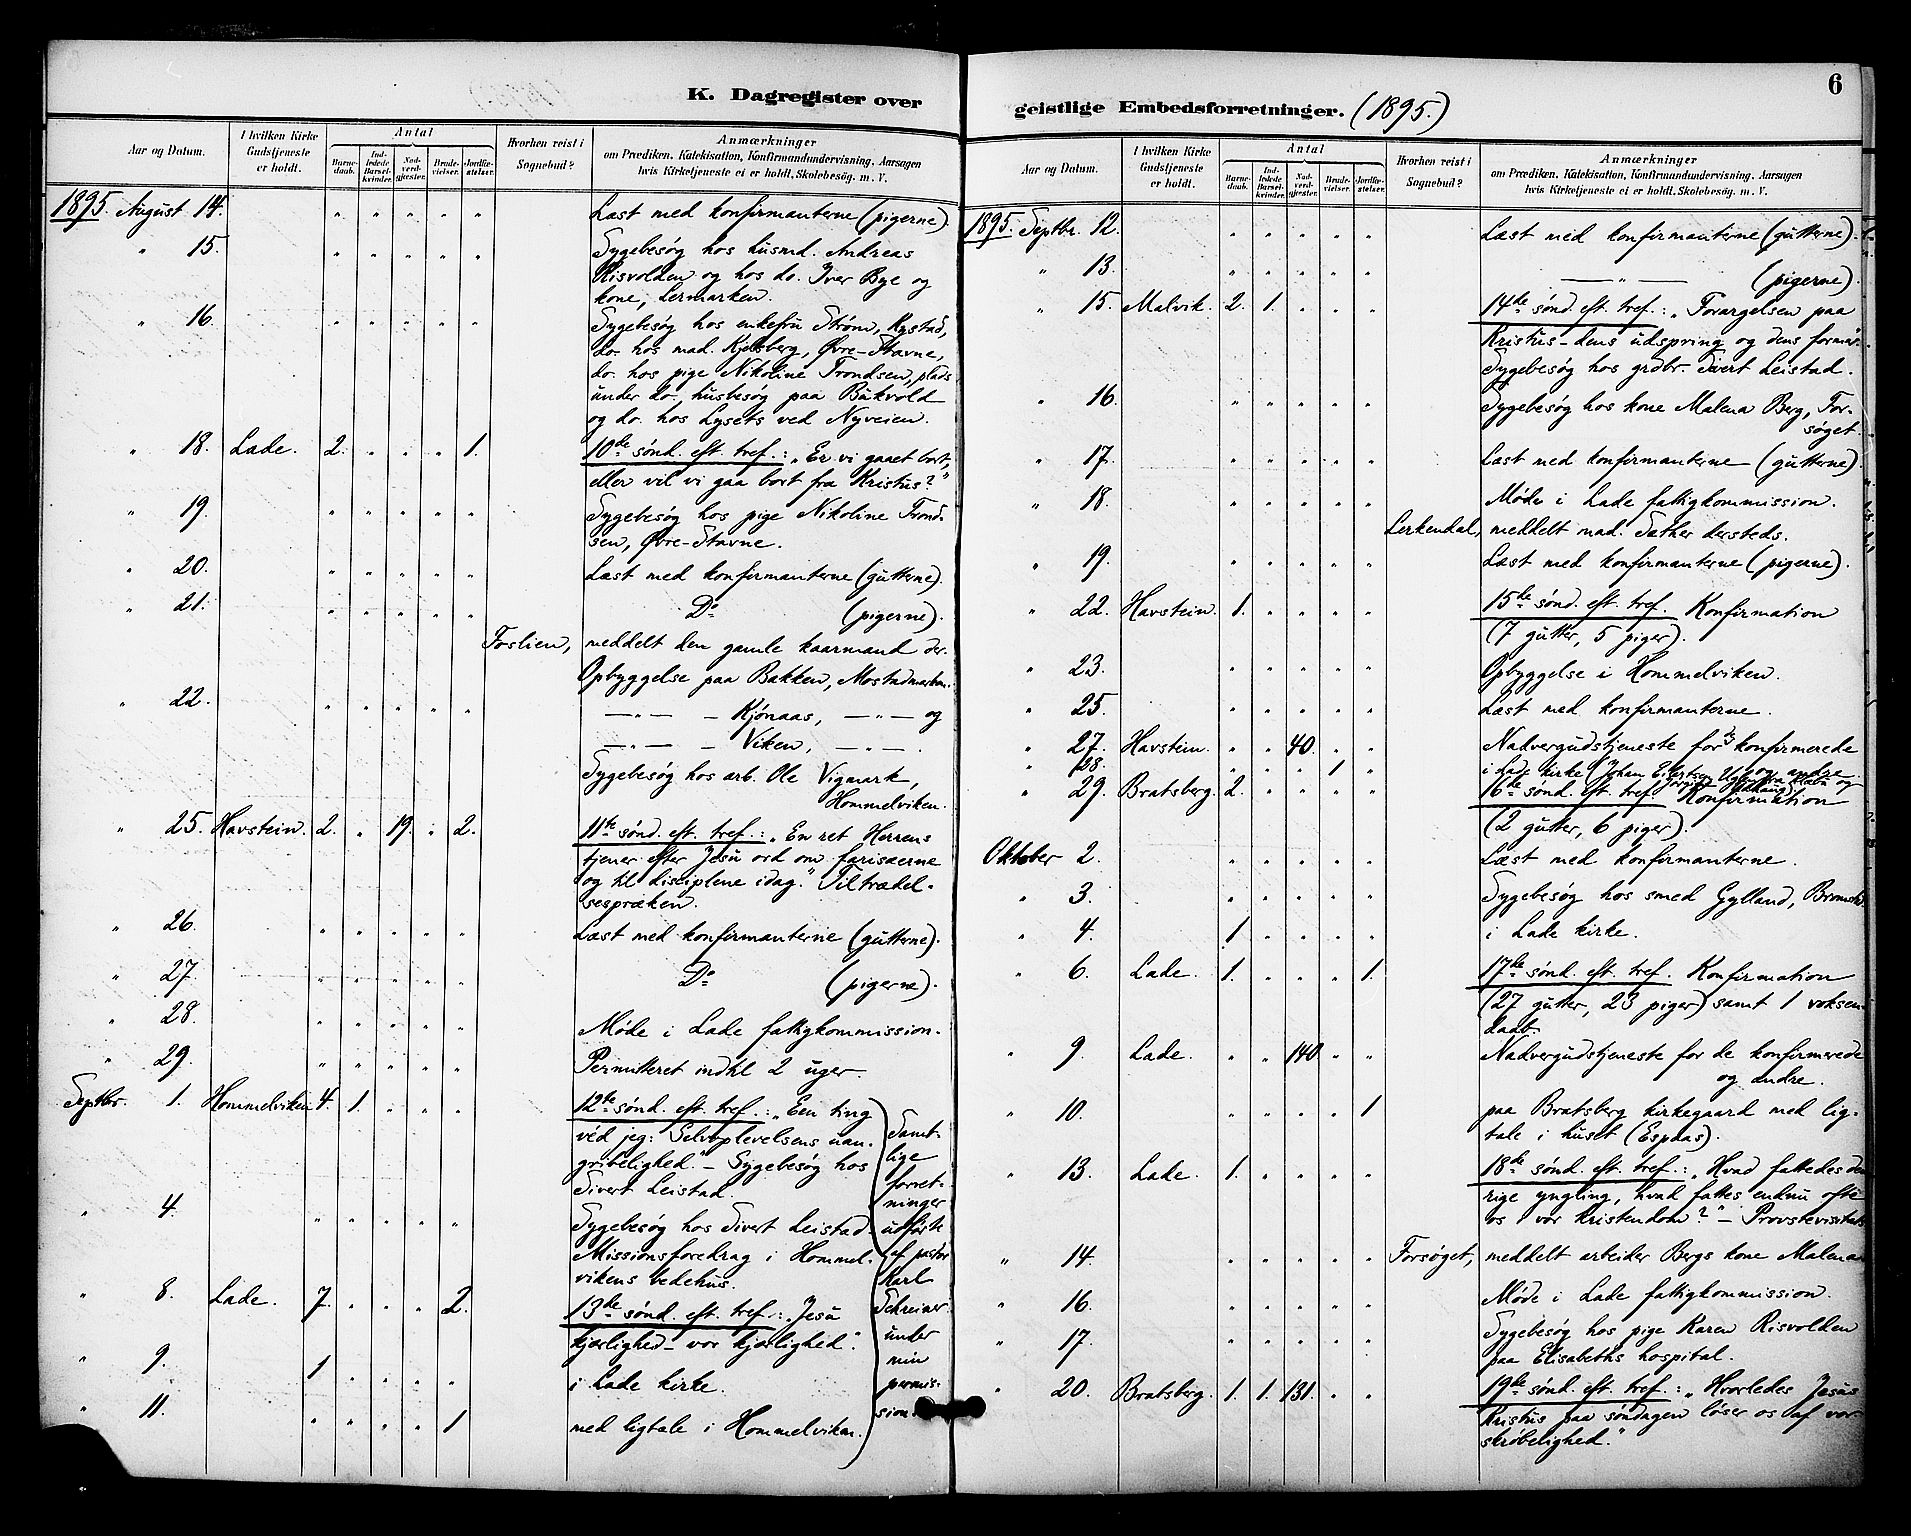 K. Dagregister over
Aar og Datum. I hvilken Kirke Gudstjeneste er holdt. Antal Barnedaab. Indledede Barselkvinder. Nadverdgjester. Brudevielser. Jordfæstelser. Hvorhen reist i Sognebud? Anmærkninger
om Prædiken, Katekisation, Konfirmandundervisning. Aarsagen
hvis Kirketjeneste ei er holdt. Skolebesøg. m. V.
1895. August 14. " " " " " Læst med konfirmanterne (pigerne)
" 15. " " " " " Sygebesøg hos husmd. Andreas
Risvolden og hos do. Iver Bye og
kone, Lermarken.
" 16. " " " " " Sygebesøg hos enkefru Strøm, Rystad,
do. hos mad. Kjelsberg, Øvre-Stavne,
do. hos pige Nikoline Trondsen, plads
under do., husbesøg paa Bükvold
og do. hos Lysets ved Nyveien.
" 18. Lade. 2. " " " 1. 10de sønd. eft. tref.: "Er vi gaaet bort,
eller vil vi gaa bort fra Kristus?"
" 19. " " " " " Sygebesøg hos pige Nikoline Trond-
sen, Øvre-Stavne.
" 20. " " " " " Læst med konfirmanterne (gutterne).
" 21. " " " " " Do (pigerne).
Foslien, meddelt den gamle kaarmand der.
Opbyggelse paa Bakken, Mostadmarken.
" 22. " " " " " —"— - Kjønaas, —"— og
—"— - Viken, —"—.
Sygebesøg hos arb. Ole Vigmark,
Hommelviken.
" 25. Havstein. 2. " 19. " 2. 11te sønd. eft. tref.: "En ret Herrens
tjener efter Jesu ord om farisæerne
og til disciplene idag." Tiltrædel-
sespræken.
" 26. " " " " " Læst med konfirmanterne (gutterne).
" 27. " " " " " Do (pigerne).
" 28. " " " " " Møde i Lade fattigkommission.
" 29. " " " " " Permitteret indtil 2 uger.
Septbr. 1. Hommelviken 4. 1. " " " 12te sønd. eft. tref.: "Een ting
véd jeg: Selvoplevelsens uan-
gribelighed." - Sygebesøg hos
Sivert Leistad.
" 4. " " " " " Sygebesøg hos Sivert Leistad.
Missionsforedrag i Hommel-
vikens bedehus.
" 8. Lade. 7. " " " 2. 13de sønd. eft. tref.: "Jesu
kjærlighed - vor kjærlighed".
" 9. 1 " " " " i Lade kirke.
" 11. " " " " 1 med ligtale i Hommelviken.
Samt-
lige
forret-
ninger
udførte
af pastor
Karl
Schreiner
under
min
permis-
sion.
geistlige Embedsforretninger. (1895.)
6
Aar og Datum. I hvilken Kirke Gudstjeneste er holdt. Antal Barnedaab. Indledede Barselkvinder. Nadverdgjester. Brudevielser. Jordfæstelser. Hvorhen reist i Sognebud? Anmærkninger
om Prædiken, Katekisation, Konfirmandundervisning. Aarsagen
hvis Kirketjeneste ei er holdt. Skolebesøg. m. V.
1895. Septbr. 12. " " " " " Læst med konfirmanterne (gutterne).
" 13. " " " " " —"— (pigerne).
" 15. Malvik. 2. 1. " " " 14de sønd. eft. tref.: "Forargelsen paa
Kristus - dens udspring og dens
Sygebesøg hos grdbr. Sivert Leistad.
" 16. " " " " " Sygebesøg hos kone Malena Berg, For-
søget.
" 17. " " " " " Læst med konfirmanterne (gutterne).
" 18. " " " " " Møde i Lade fattigkommission.
Lerkendal, meddelt mad. Sæther dersteds.
" 19. " " " " " Læst med konfirmanterne (pigerne).
" 22. Havstein. 1. " " " " 15de sønd. eft. tref. Konfirmation
(7 gutter, 5 piger).
" 23. " " " " " Opbyggelse i Hommelviken.
" 25. " " " " " Læst med konfirmanterne.
" 27. Havstein. " " 40. " " Nadvergudstjeneste for konfirmerede
" 28. " " " 1 " i Lade kirke (Johan Eilertsen og andre
" 29. Bratsberg. 2. " " " " 16de sønd. eft. tref. Konfirmation
(2 gutter, 6 piger).
Oktober 2. " " " " " Læst med konfirmanterne.
" 3. " " " " " Sygebesøg hos smed Gylland,
" 4. 1 " " " " i Lade kirke.
" 6. Lade. 1. " " " 1. 17de sønd. eft. tref. Konfirmation
(27 gutter, 23 piger) samt 1 voksen-
daab.
" 9. Lade. " " 140. " " Nadvergudstjeneste for de konfirmerede
og andre.
" 10. " " " " 1 paa Bratsberg kirkegaard med lig-
tale i huset (Espaas).
" 13. Lade. 1. " " " " 18de sønd. eft. tref.: "Hvad fattedes den
rige yngling, hvad fattes endnu ofte
os i vor kristendom?" - Provstevisitats.
" 14. " " " " " Forsøget, meddelt arbeider Bergs kone Malena
" 16. " " " " " Møde i Lade fattigkommission.
" 17. " " " " " Sygebesøg hos pige Karen Risvolden
paa Elisabeths hospital.
" 20. Bratsberg. 1. 1. 131. " " 19de sønd. eft. tref.: "Hvorledes Jesus
Kristus paa søndagen løser os af vor
skrøbelighed."